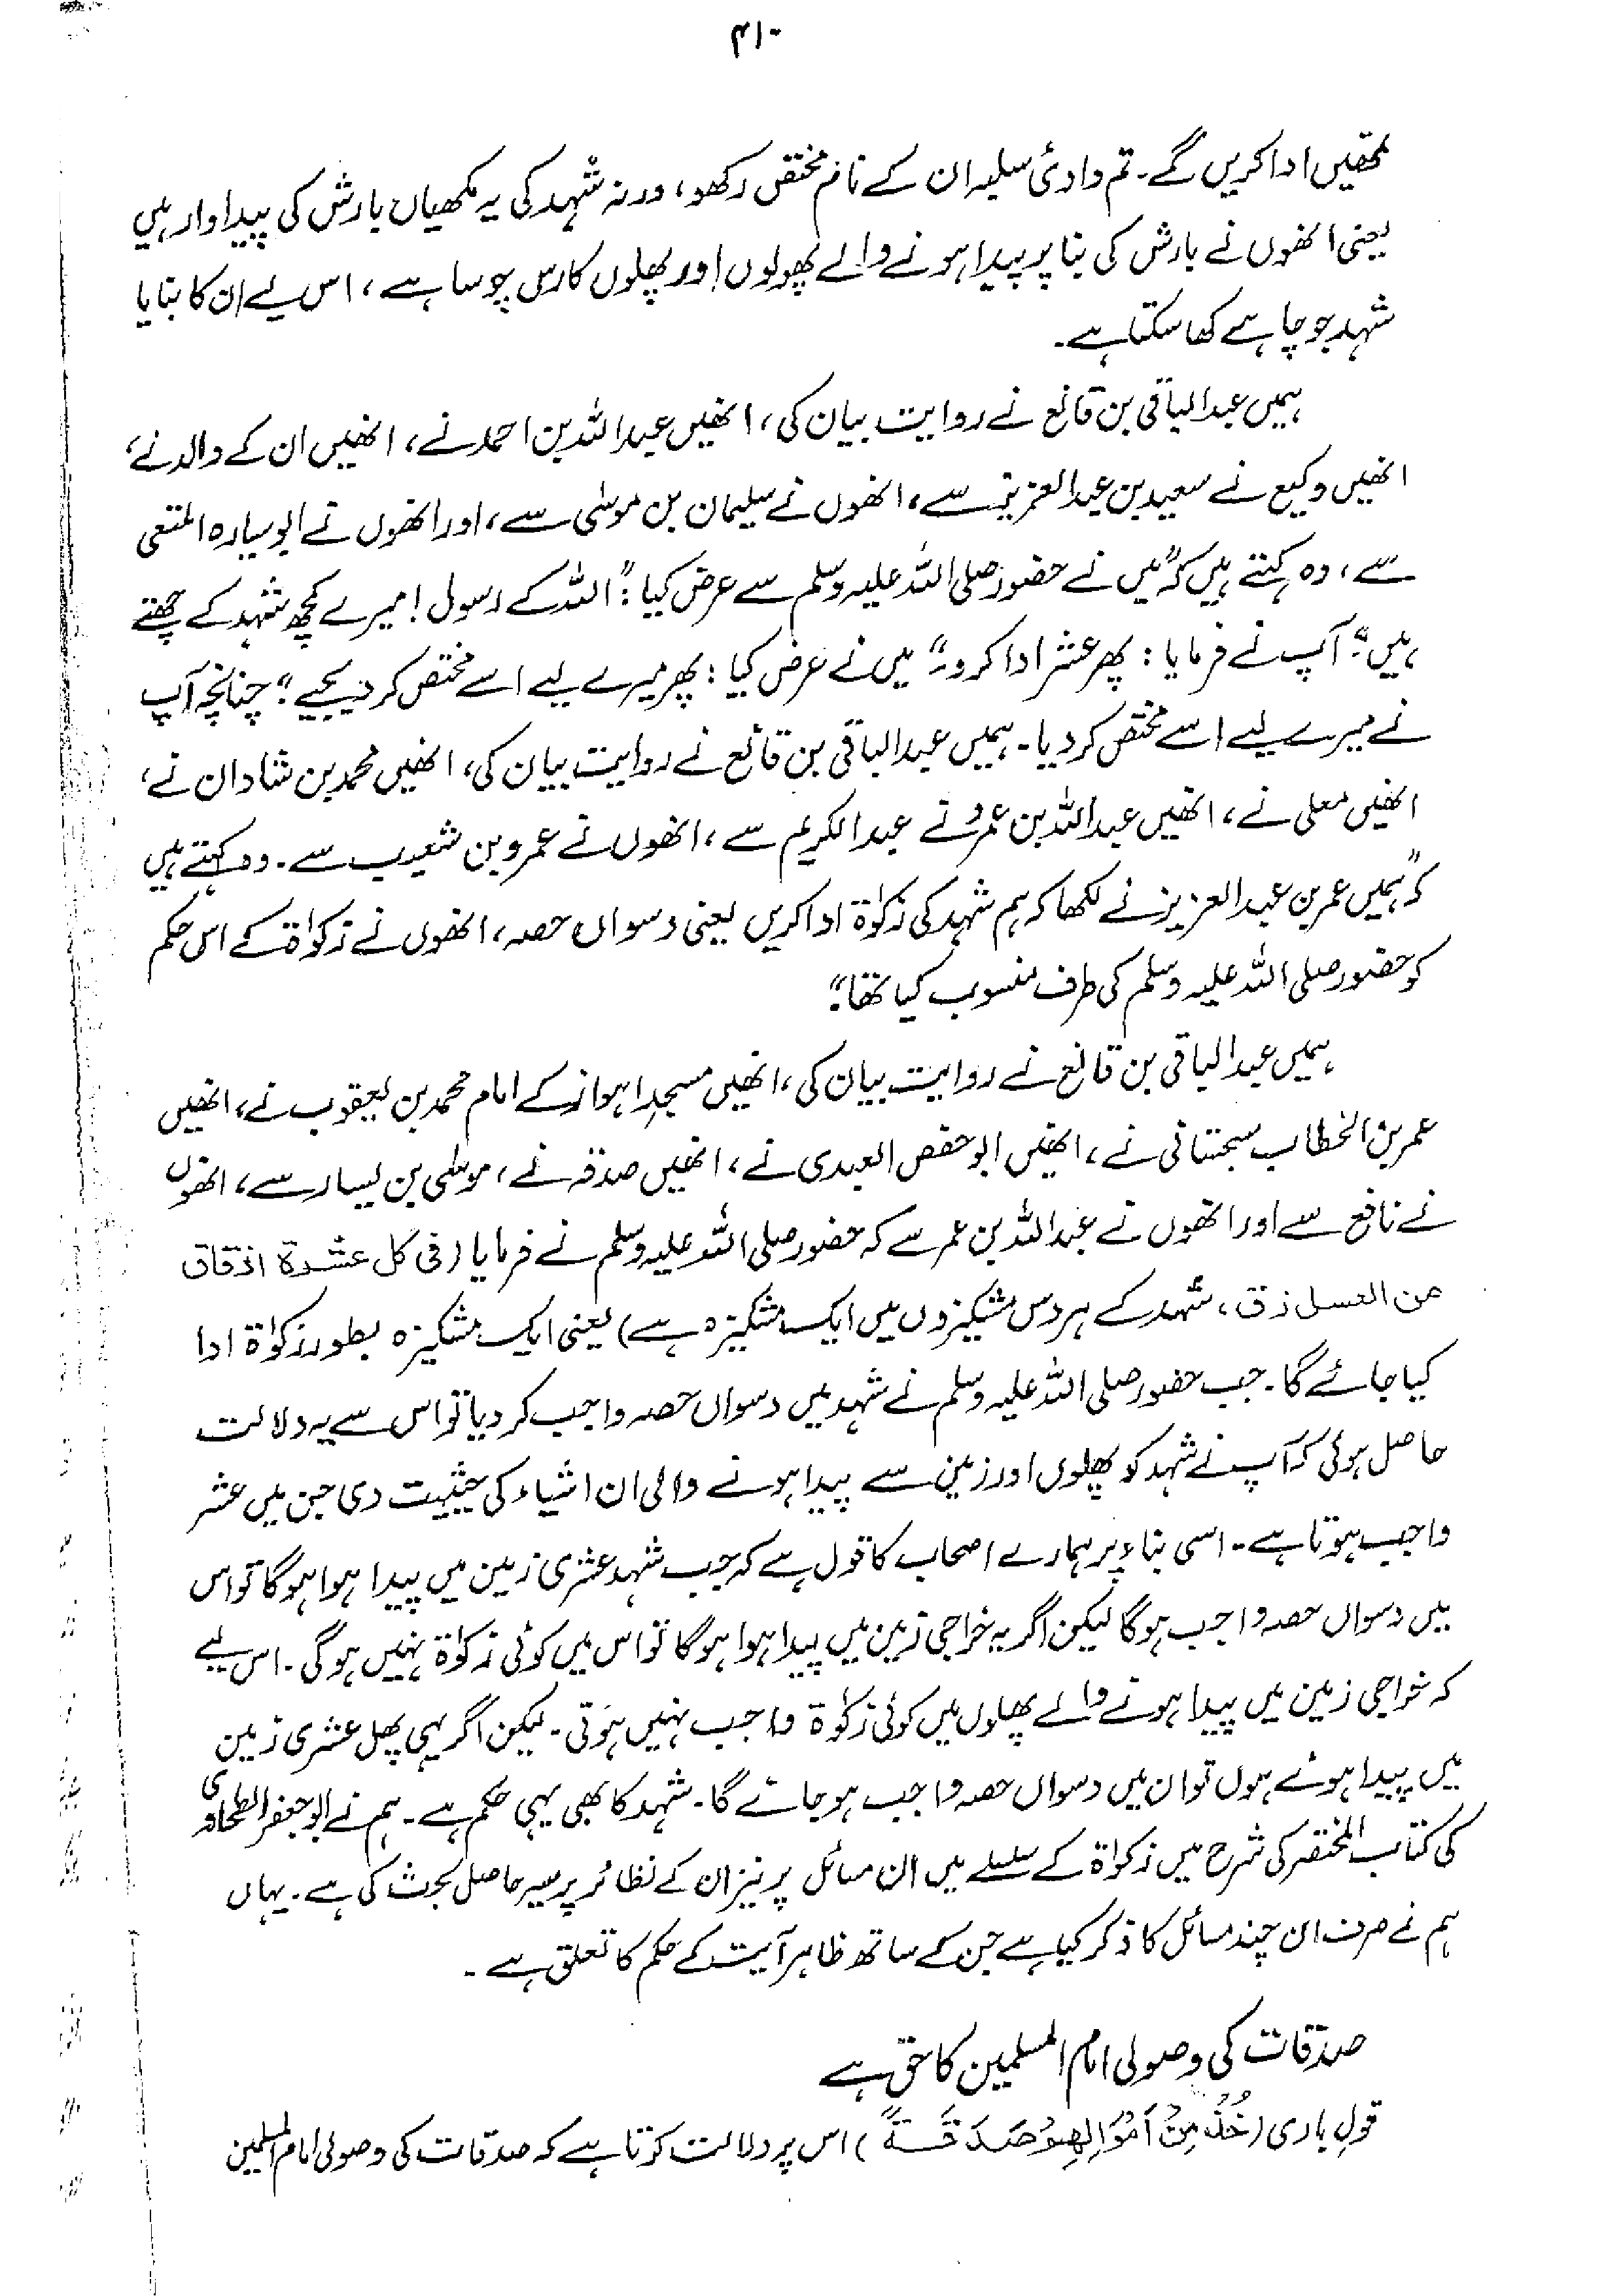 ۴۱۰
تمھیں ادا کریں گے۔ تم وادیٔ سلبہ ان کے نام مختص رکھو، ورنہ شہد کی یہ مکھیاں بارش کی پیداوار ہیں
یعنی انھوں نے بارش کی بنا پر پیدا ہونے والے پھولوں اور پھلوں کا رس چوسا ہے، اس لیے ان کا بنایا
شہد جو چاہے کھا سکتا ہے۔
ہمیں عبدالباقی بن قانع نے روایت بیان کی، انھیں عبداللہ بن احمد نے، انھیں ان کے والد نے،
انھیں وکیع نے سعید بن عبدالعزیز سے، انھوں نے سلیمان بن موسٰی سے، اور انھوں نے ابو سیارہ المتعی
سے، وہ کہتے ہیں کہ "میں نے حضور صلی اللہ علیہ وسلم سے عرض کیا: "اللہ کے رسول! میرے کچھ شہد کے چھتے
ہیں"۔ آپ نے فرمایا: پھر عشر ادا کرو۔" میں نے عرض کیا: پھر میرے لیے اسے مختص کر دیجیے" چنانچہ آپ
نے میرے لیے اسے مختص کر دیا۔ ہمیں عبدالباقی بن قانع نے روایت بیان کی، انھیں محمد بن شاذان نے،
انھیں معلی نے، انھیں عبداللہ بن عمرو نے عبدالکریم سے، انھوں نے عمرو بن شعیب سے۔ وہ کہتے ہیں
کہ "ہمیں عمر بن عبدالعزیز نے لکھا کہ ہم شہد کی زکوٰۃ ادا کریں یعنی دسواں حصہ، انھوں نے زکواۃ کے اس حکم
کو حضور صلی اللہ علیہ وسلم کی طرف منسوب کیا تھا"۔
ہمیں عبدالباقی بن قانع نے روایت بیان کی، انھیں مسجدِ اہواز کے امام محمد بن یعقوب نے، انھیں
عمر بن الخطاب سجستانی نے، انھیں ابو حفص العبدی نے، انھیں صدقہ نے، موسٰی بن یسار سے، انھوں
نے نافع سے اور انھوں نے عبداللہ بن عمر سے کہ حضور صلی اللہ علیہ وسلم نے فرمایا (فی کل عشرۃ ازقاق
من العسل زق، شہد کے ہر دس مشکیزوں میں ایک مشکیزہ ہے) یعنی ایک مشکیزہ بطور زکوٰۃ ادا
کیا جائے گا۔ جب حضور صلی اللہ علیہ وسلم نے شہد میں دسواں حصہ واجب کر دیا تو اس سے یہ دلالت
حاصل ہوئی کہ آپ نے شہد کو پھلوں اور زمین سے پیدا ہونے والی ان اشیاء کی حیثیت دی جن میں عشر
واجب ہوتا ہے۔ اسی بناء پر ہمارے اصحاب کا قول ہے کہ جب شہد عشری زمین میں پیدا ہوا ہوگا تو اس
میں دسواں حصہ واجب ہوگا لیکن اگر یہ خراجی زمین میں پیدا ہوا ہوگا تو اس میں کوئی زکوٰۃ نہیں ہوگی۔ اس لیے
کہ خراجی زمین میں پیدا ہونے والے پھلوں میں کوئی زکوٰۃ واجب نہیں ہوتی۔ لیکن اگر یہی پھل عشری زمین
میں پیدا ہوئے ہوں تو ان میں دسواں حصہ واجب ہو جائے گا۔ شہد کا بھی یہی حکم ہے۔ ہم نے ابو جعفر الطحاوی
کی کتاب المختصر کی شرح میں زکواۃ کے سلسلے میں ان مسائل پر نیز ان کے نظائر پر سیر حاصل بحث کی ہے۔ یہاں
ہم نے صرف ان چند مسائل کا ذکر کیا ہے جن کے ساتھ ظاہر آیت کے حکم کا تعلق ہے۔
صدقات کی وصولی امام المسلمین کا حق ہے
قولِ باری (خُذْ مِنْ اَمْوَالِهِمْ صَدَقَةً) اس پر دلالت کرتا ہے کہ صدقات کی وصولی امام المسلمین